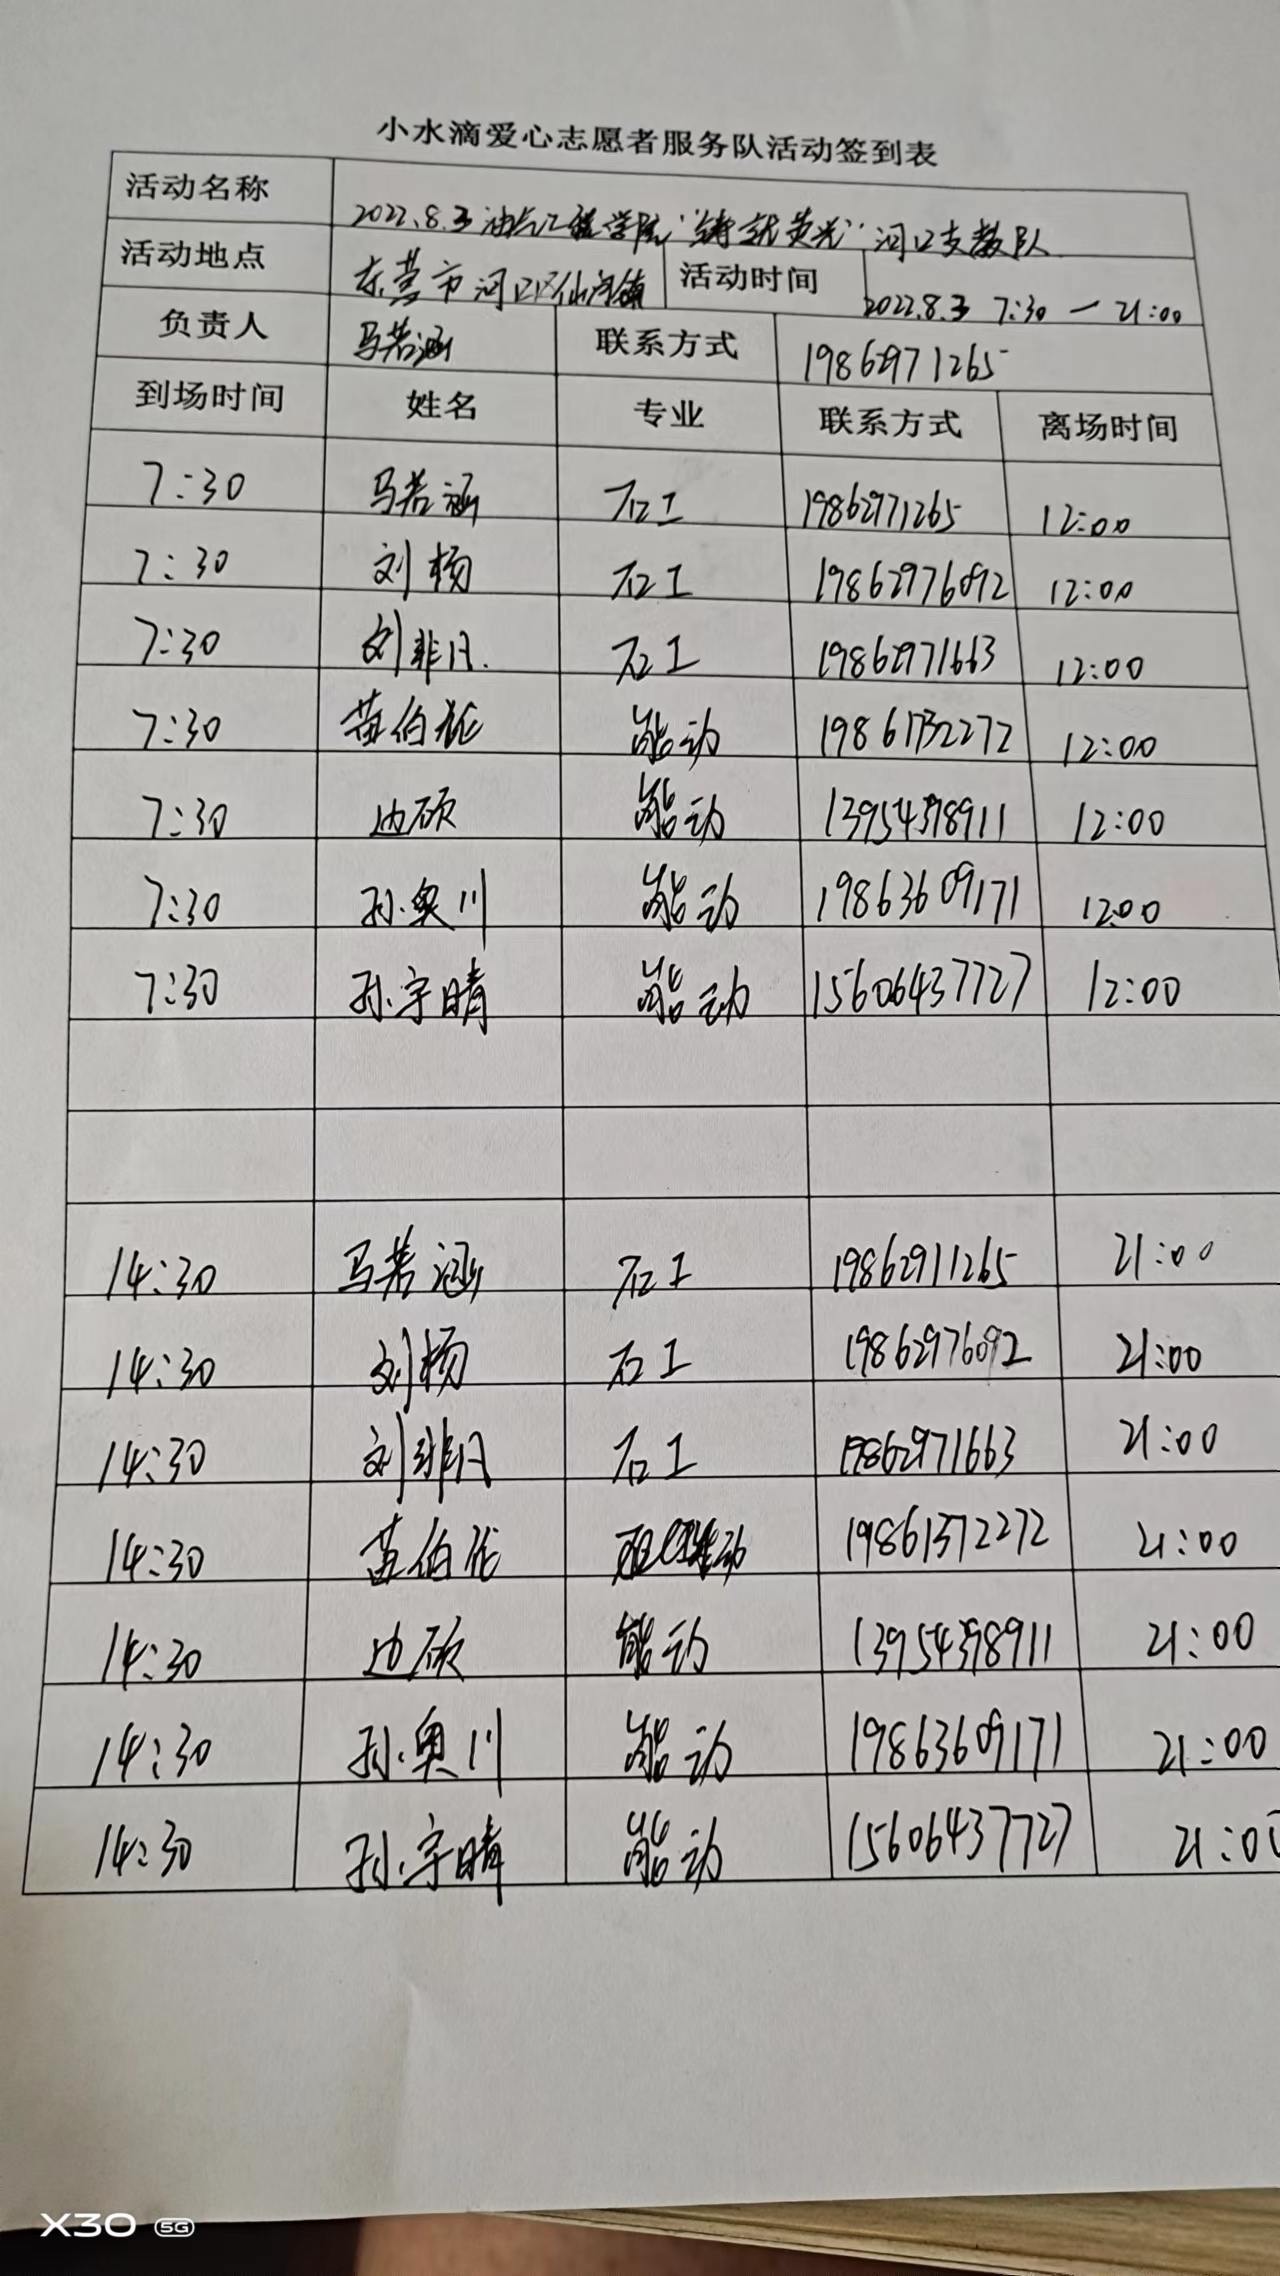 小水滴爱心志愿者服务队活动签到表
活动名称 2022.8.3 油气工程学院"铸就荧光"河口支教队
活动地点 东营市河口区仙河镇 活动时间 2022.8.3 7:30 — 21:00
负责人 马若涵 联系方式 19862971265
到场时间 姓名 专业 联系方式 离场时间
7:30 马若涵 石工 19862971265 12:00
7:30 刘杨 石工 19862976092 12:00
7:30 刘非凡 石工 19862971663 12:00
7:30 苗伯 能动 19861732272 12:00
7:30 边硕 能动 13954398911 12:00
7:30 孙奥川 能动 19863609171 12:00
7:30 孙宇晴 能动 15606437727 12:00
14:30 马若涵 石工 19862911265 21:00
14:30 刘杨 石工 19862976092 21:00
14:30 刘非凡 石工 19862971663 21:00
14:30 苗伯 动 19861372272 21:00
14:30 边硕 能动 13954398911 21:00
14:30 孙奥川 能动 19863609171 21:00
14:30 孙宇晴 能动 15606437727 21:00
X30 5G